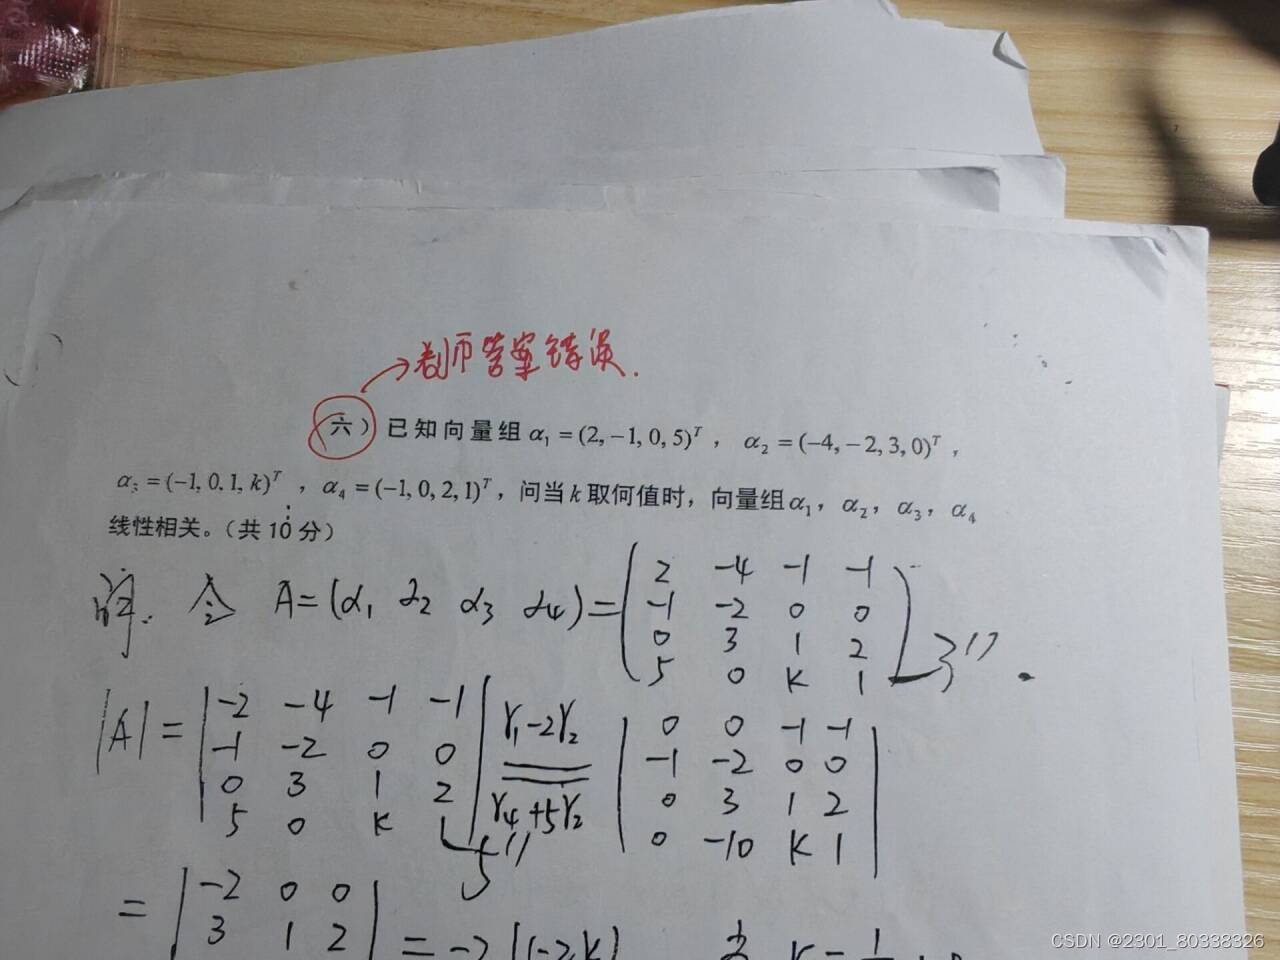 老师答案错误.
(六) 已知向量组 α₁ = (2, -1, 0, 5)ᵀ ， α₂ = (-4, -2, 3, 0)ᵀ ，
α₃ = (-1, 0, 1, k)ᵀ ， α₄ = (-1, 0, 2, 1)ᵀ ，问当 k 取何值时，向量组 α₁， α₂， α₃， α₄
线性相关。（共 10 分）
解. 令 A = (α₁ α₂ α₃ α₄) =
2 -4 -1 -1
-1 -2 0 0
0 3 1 2
5 0 k 1
3''.
|A| =
-2 -4 -1 -1
-1 -2 0 0
0 3 1 2
5 0 k 1
5''
r₁-2r₂
r₄+5r₂
0 0 -1 -1
-1 -2 0 0
0 3 1 2
0 -10 k 1
=
-2 0 0
3 1 2
= -2(1-2k)
k = 1
CSDN @2301_80338326